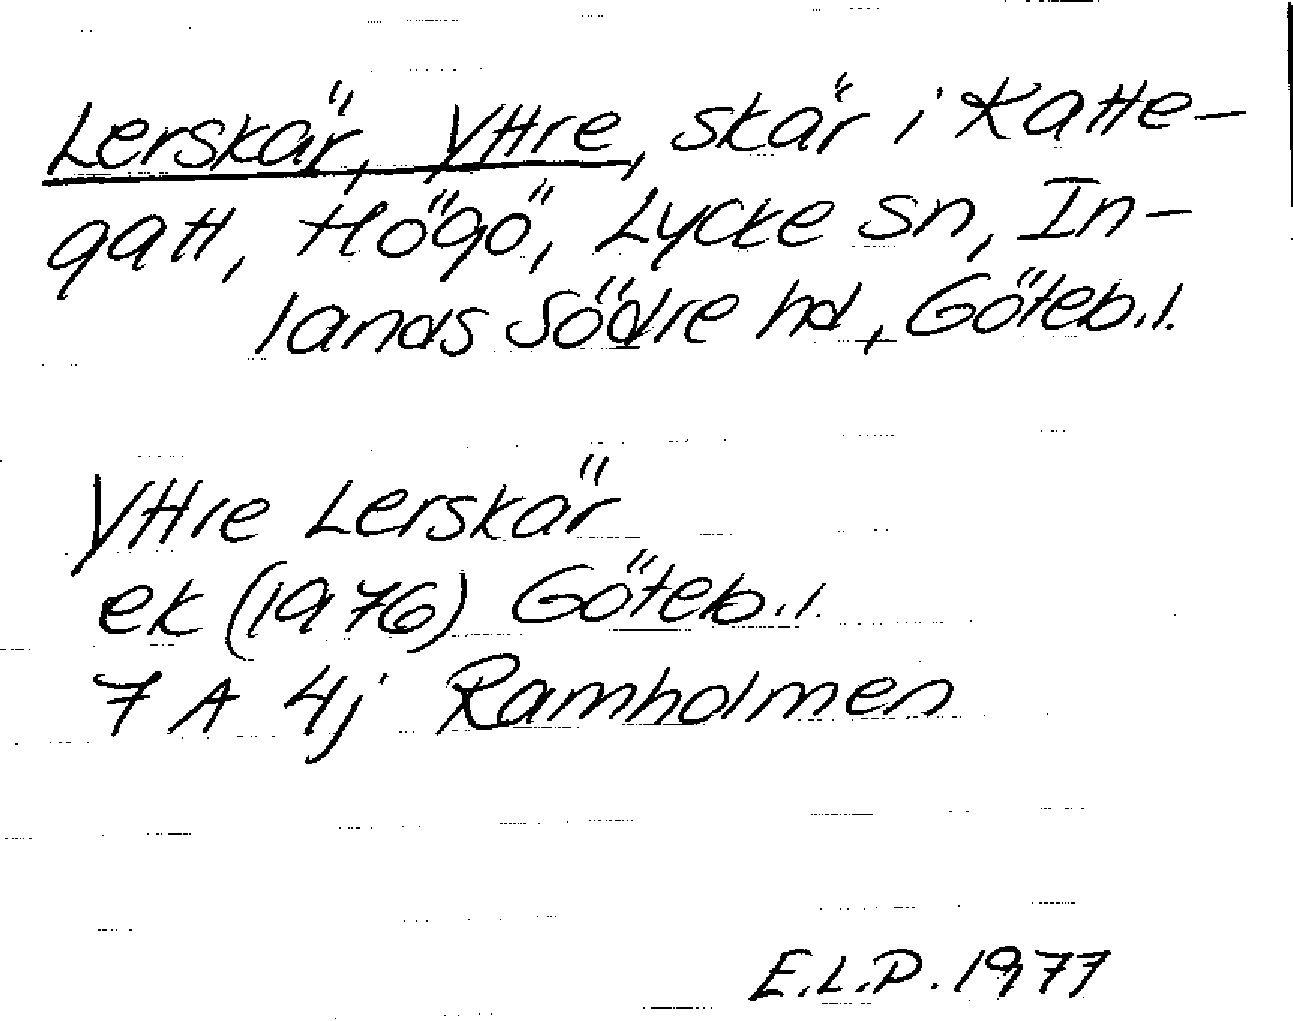 Lerskär, Yttre, skär i Katte-
gatt, Högö, Lycke sn, In-
lands Södre hd, Göteb.l.
Yttre Lerskär
ek (1976) Göteb.l.
7 A 4j Ramholmen
E.L.P. 1977